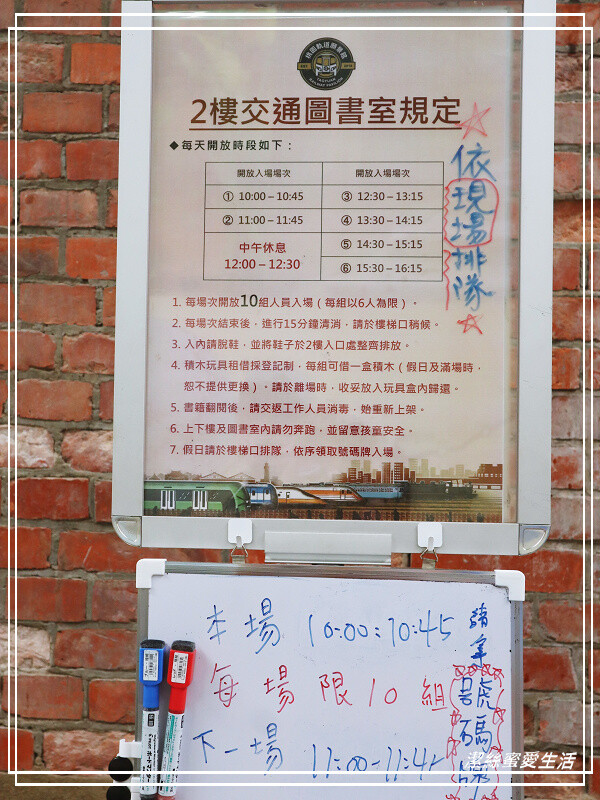 桃園軌道願景館
TAOYUAN
RAILWAY PAVILION
2樓交通圖書室規定
◆每天開放時段如下：
開放入場場次 開放入場場次
① 10:00－10:45 ③ 12:30－13:15
② 11:00－11:45 ④ 13:30－14:15
中午休息
12:00－12:30
⑤ 14:30－15:15
⑥ 15:30－16:15
依現場排隊
1. 每場次開放10組人員入場（每組以6人為限）。
2. 每場次結束後，進行15分鐘清消，請於樓梯口稍候。
3. 入內請脫鞋，並將鞋子於2樓入口處整齊排放。
4. 積木玩具租借採登記制，每組可借一盒積木（假日及滿場時，
恕不提供更換）。請於離場時，收妥放入玩具盒內歸還。
5. 書籍翻閱後，請交返工作人員消毒，始重新上架。
6. 上下樓及圖書室內請勿奔跑，並留意孩童安全。
7. 假日請於樓梯口排隊，依序領取號碼牌入場。
本場 10:00:10:45
每場限10組
下一場 11:00-11:45
請拿
號碼牌
潔絲蜜愛生活